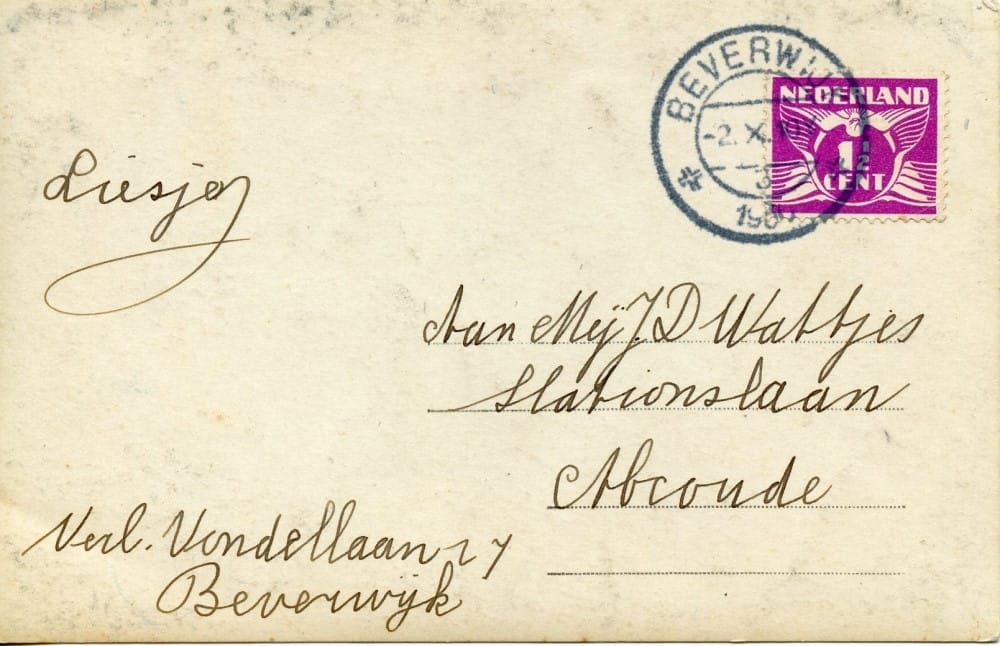 BEVERWIJK
-2. X.
3
NEDERLAND
1½
CENT
Liesje
Aan Mej J. D Wattjes
Stationslaan
Abcoude
Verl. Vondellaan 27
Beverwijk